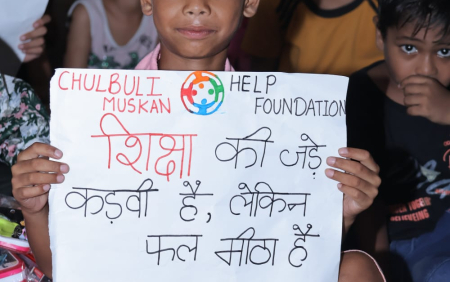 CHULBULI HELP
MUSKAN FOUNDATION
शिक्षा की जड़े
कड़वी है, लेकिन
फल मीठा है